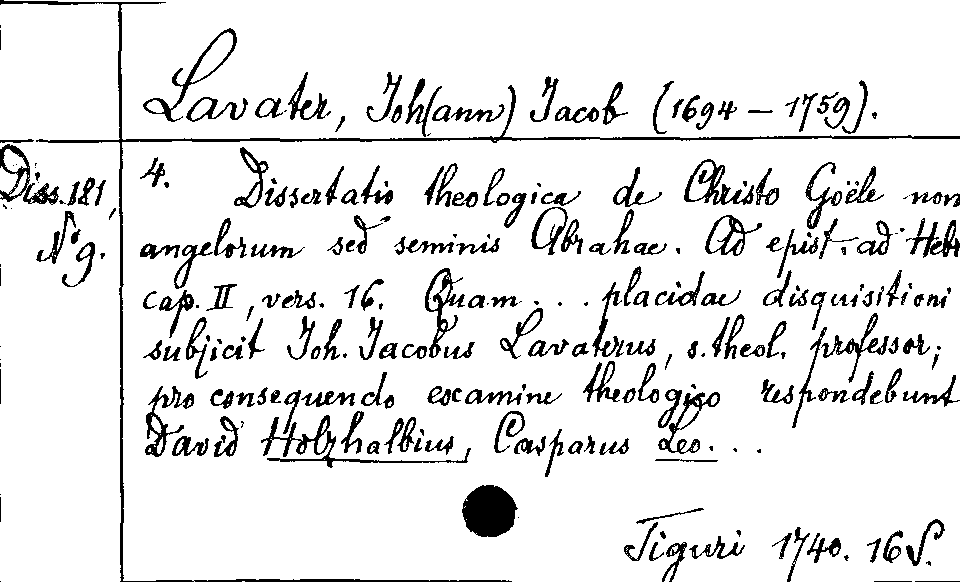 Lavater, Joh(ann) Jacob (1694 – 1759).
Diss. 181,
No 9.
4. Dissertatio theologica de Christo Goële non
angelorum sed seminis Abrahae. Ad epist. ad Hebr
cap. II, vers. 16. Quam . . . placidae disquisitioni
subjicit Joh. Jacobus Lavaterus, s. theol. professor;
pro consequendo examine theologico respondebunt
David Holzhalbius, Casparus Leo. . .
Tiguri 1740. 16 S.